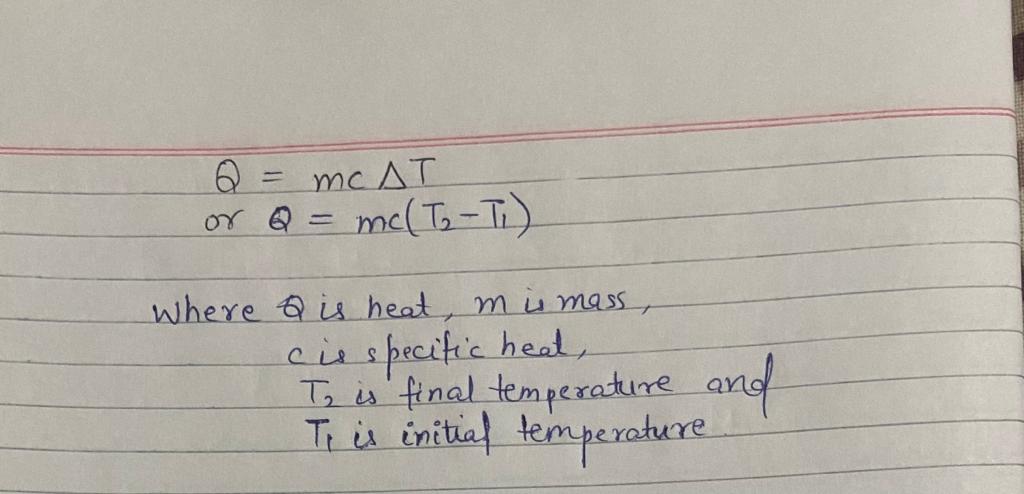 Q = mc ΔT
or Q = mc(T₂-T₁)
Where Q is heat, m is mass,
c is specific heat,
T₂ is final temperature and
T₁ is initial temperature.